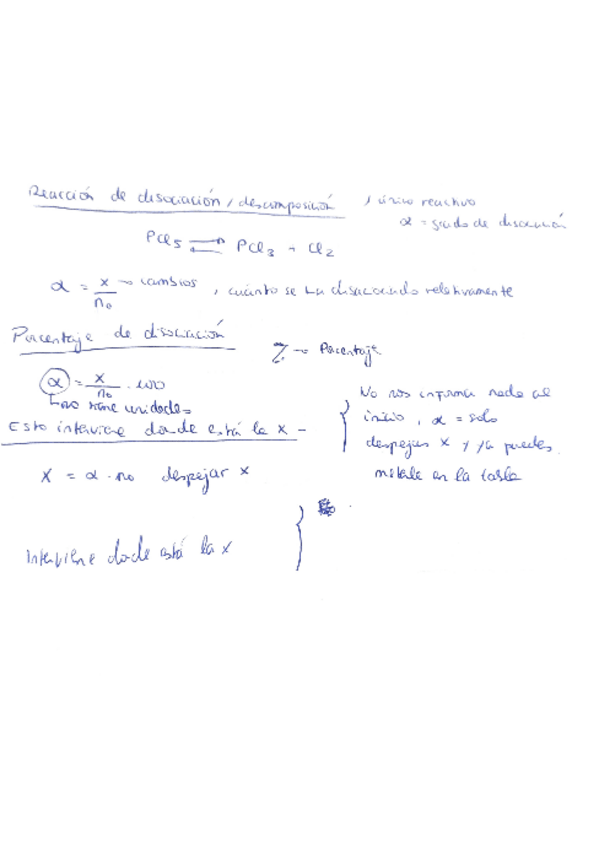 Reacción de disociación / descomposición / único reactivo
α = grado de disociación
PCl5 ⇌ PCl3 + Cl2
α = x/n0 → cambios, cuánto se ha disociando relativamente
Porcentaje de disociación
% → Porcentaje
α = x/n0 · 100
no tiene unidades
No nos informa nada al
inicio, α = solo
despejas x y ya puedes
meterle en la tabla
Esto interviene donde está la x -
X = α · n0 despejar x
Interviene dode está la x